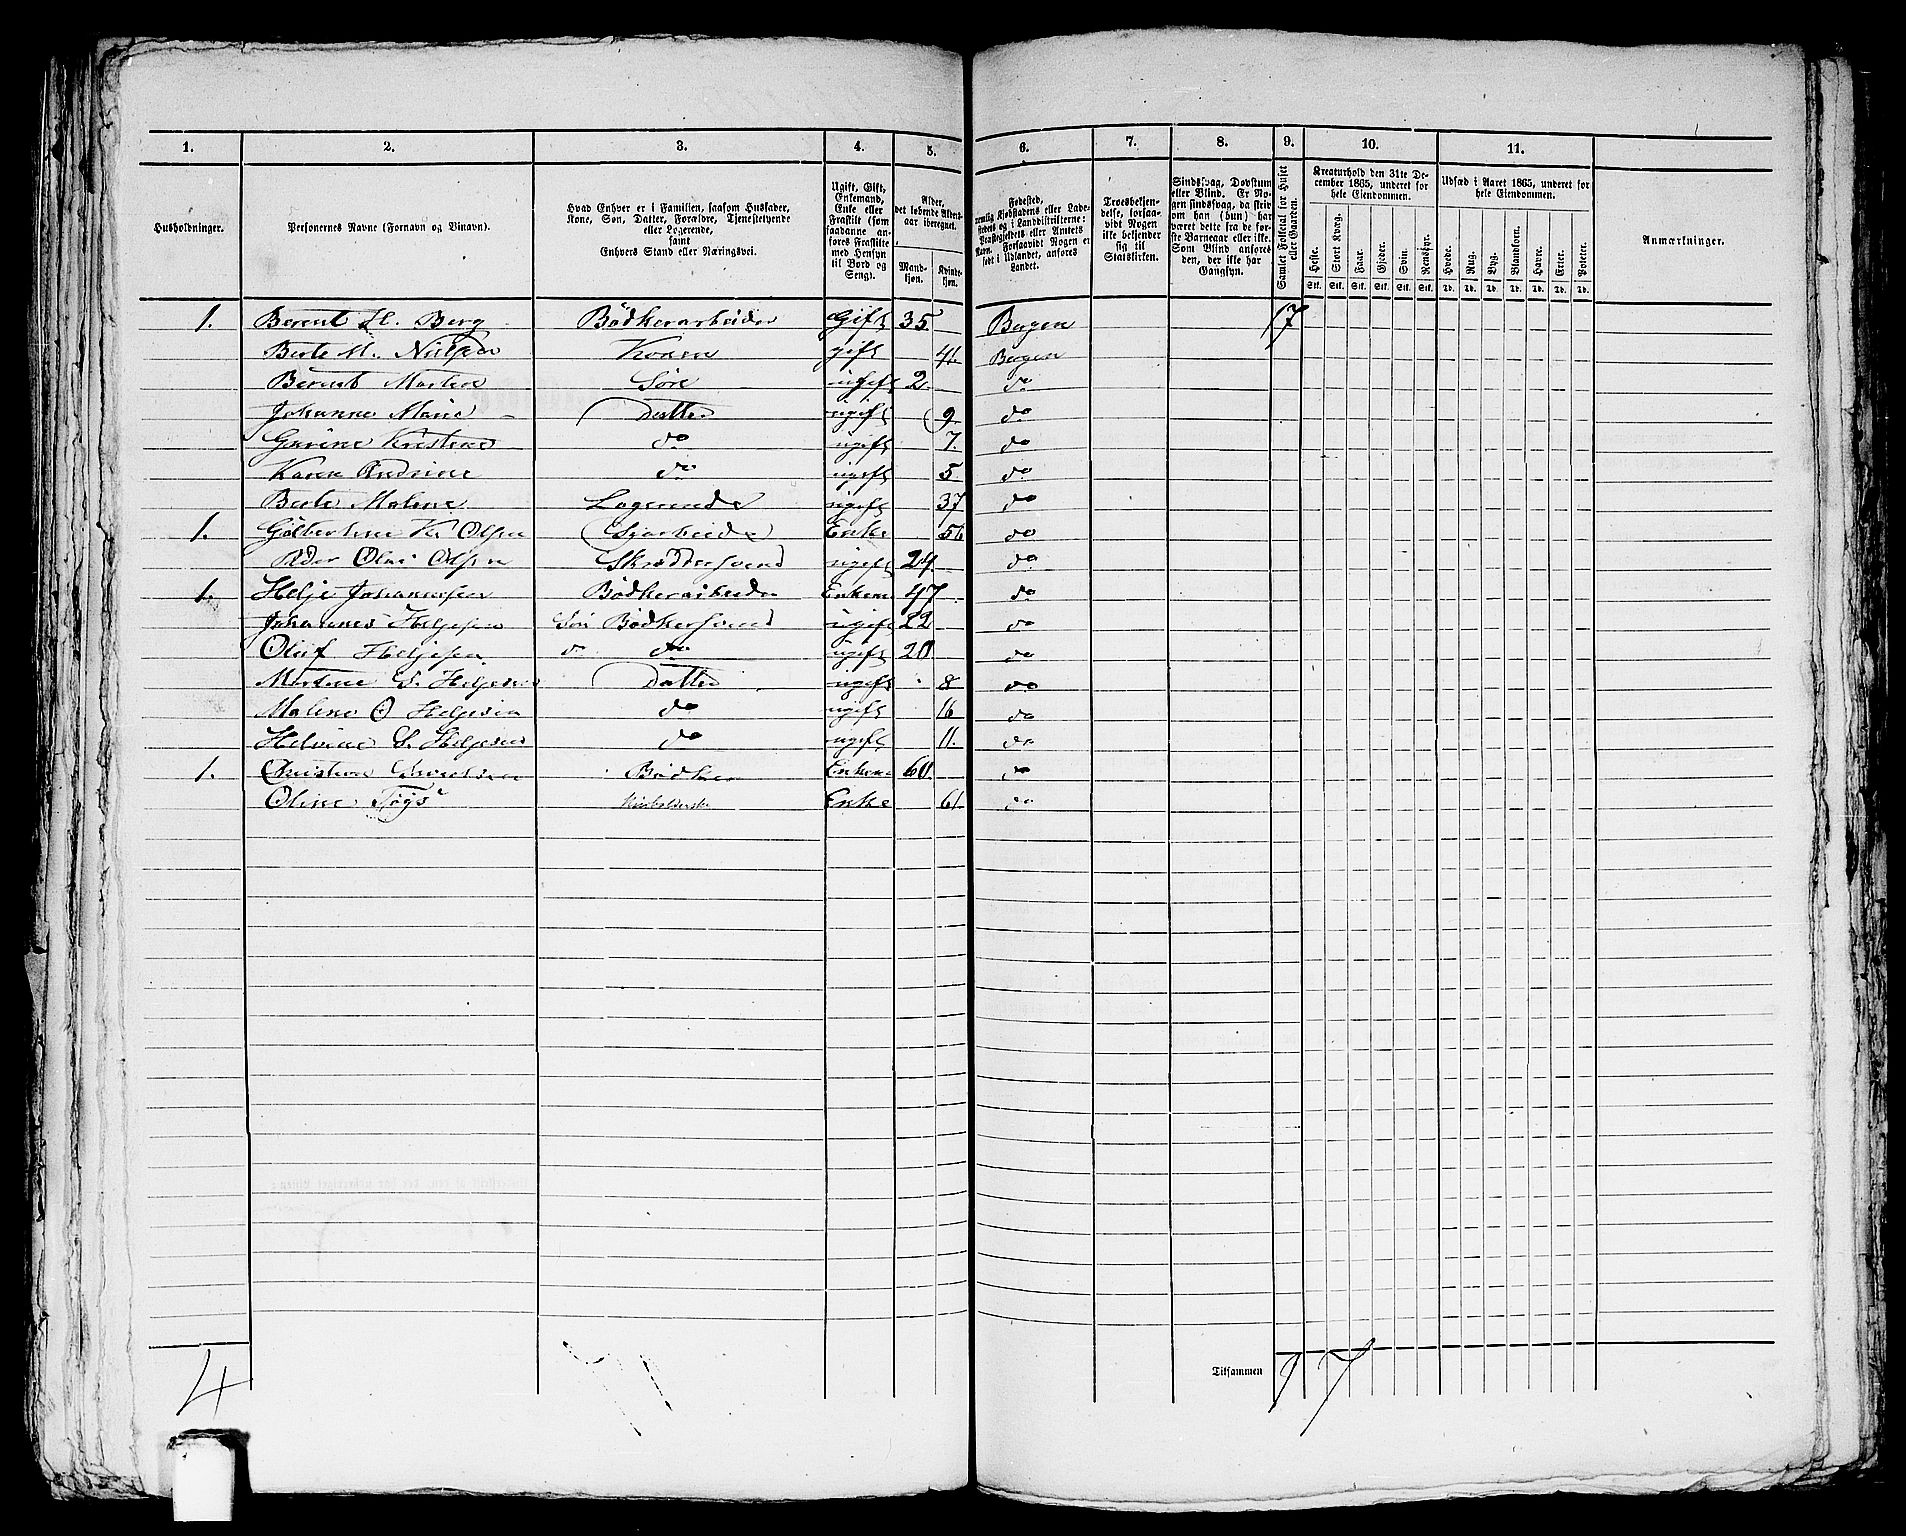 1. 2. 3. 4. 5. 6. 7. 8. 9. 10. 11.
Husholdninger.
Personernes Navne (Fornavn og Tilnavn).
Hvad Enhver er i Familien, saasom Husfader,
Kone, Søn, Datter, Forældre, Tjenestetyende
eller Logerende,
samt
Enhvers Stand eller Næringsvei.
Ugift, Gift,
Enkemand,
Enke eller
Fraskilt (som
saadanne anføres Fraskilte
med Hensyn
til Bord og
Seng).
Alder,
det løbende Alders-
aar iberegnet.
Mand-
kjøn.
Kvinde-
kjøn.
Fødested,
nemlig Kjøbstadens eller Lade-
stedets og i Landdistrikterne:
Præstegjeldets eller Amtets
Navn. Forsaavidt Nogen er
født i Udlandet, anføres
Landet.
Troesbekjen-
delse, forsaa-
vidt Nogen
ikke bekjender
sig til
Statskirken.
Sindssvag, Døvstum
eller Blind. Er No-
gen sindssvag, da skriv
om han (hun) har
været dette fra de før-
ste Barneaar eller ikke.
Som Blind anføres
den, der ikke har
Gangsyn.
Samlet Folketal for Huset
eller Gaarden.
Kreaturhold den 31te De-
cember 1865, underet for
hele Eiendommen.
Heste. Stort Kvæg. Faar. Gjeder. Svin. Rensdyr.
Stk. Stk. Stk. Stk. Stk. Stk.
Udsæd i Aaret 1865, underet for
hele Eiendommen.
Hvede. Rug. Byg. Blandkorn. Havre. Erter. Poteter.
Td. Td. Td. Td. Td. Td. Td.
Anmærkninger.
1. Berent H. Berg Bødkerarbeider Gift 35. Bergen 17
Berte M. Nielsen Konen gift 41. Bergen
Berent Martin Søn ugift 2. do
Johanne Marie Datter ugift 9. do
Gurine Kristine do ugift 7. do
Karen Andrine do ugift 5. do
Berte Malene Logerende ugift 37 do
1. Gølbertine K. Olsen Enke 56 do
Peder Olai Olsen Skræddersvend ugift 24. do
1. Helje Johannesen Bødkerarbeider Enkem 47. do
Johannes Heljesen Søn Bødkersvend ugift 22 do
Oluf Heljesen do do ugift 20 do
Martine S. Heljesen Datter ugift 8 do
Malene O Heljesen do ugift 16 do
Helvine S. Heljesen do ugift 11. do
1. Christian Bødker Enkem 60. do
Oline Enke 61. do
4 Tilsammen 17